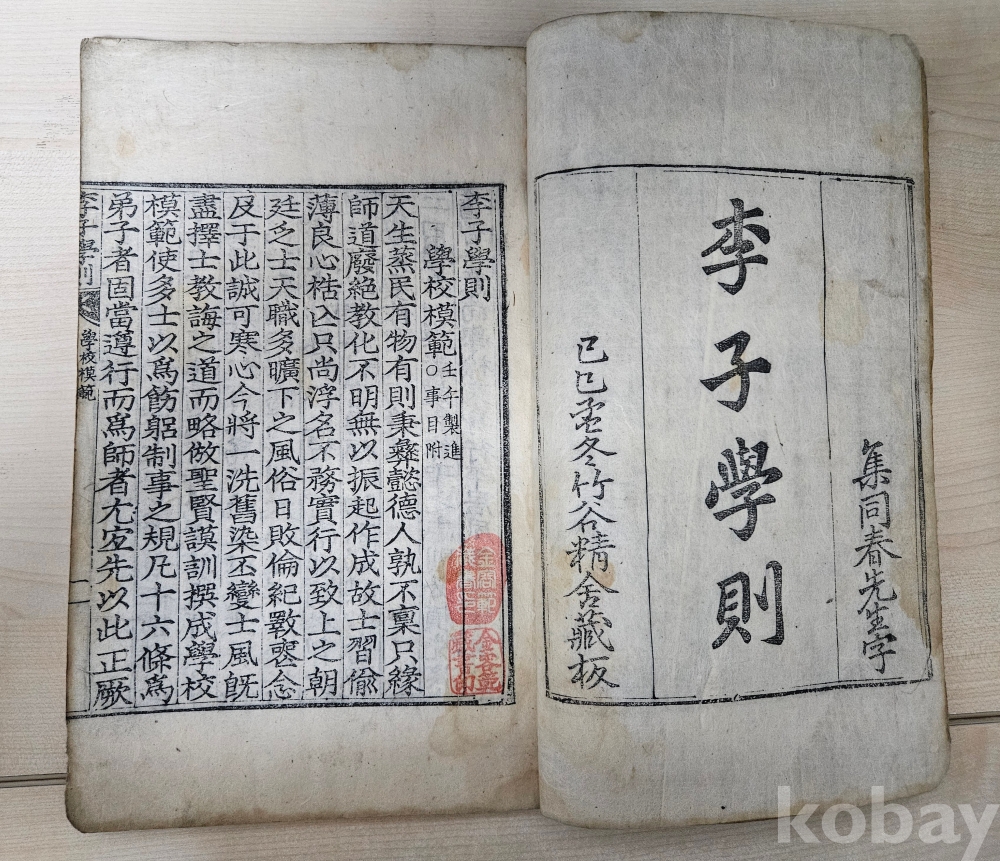 集同春先生字
李子學則
己巳孟冬竹谷精舍藏板
李子學則
學校模範 壬午製進 ○事目附
天生蒸民有物有則秉彝懿德人孰不稟只緣
師道廢絕教化不明無以振起作成故士習偸
薄良心梏亾只尚浮名不務實行以致上之朝
廷乏士天職多曠下之風俗日敗倫紀斁喪念
及于此誠可寒心今將一洗舊染丕變士風旣
盡擇士教誨之道而略倣聖賢謨訓撰成學校
模範使多士以爲飭躬制事之規凡十六條爲
弟子者固當遵行而爲師者尤宜先以此正厥
李子學則
學校模範
一
kobay